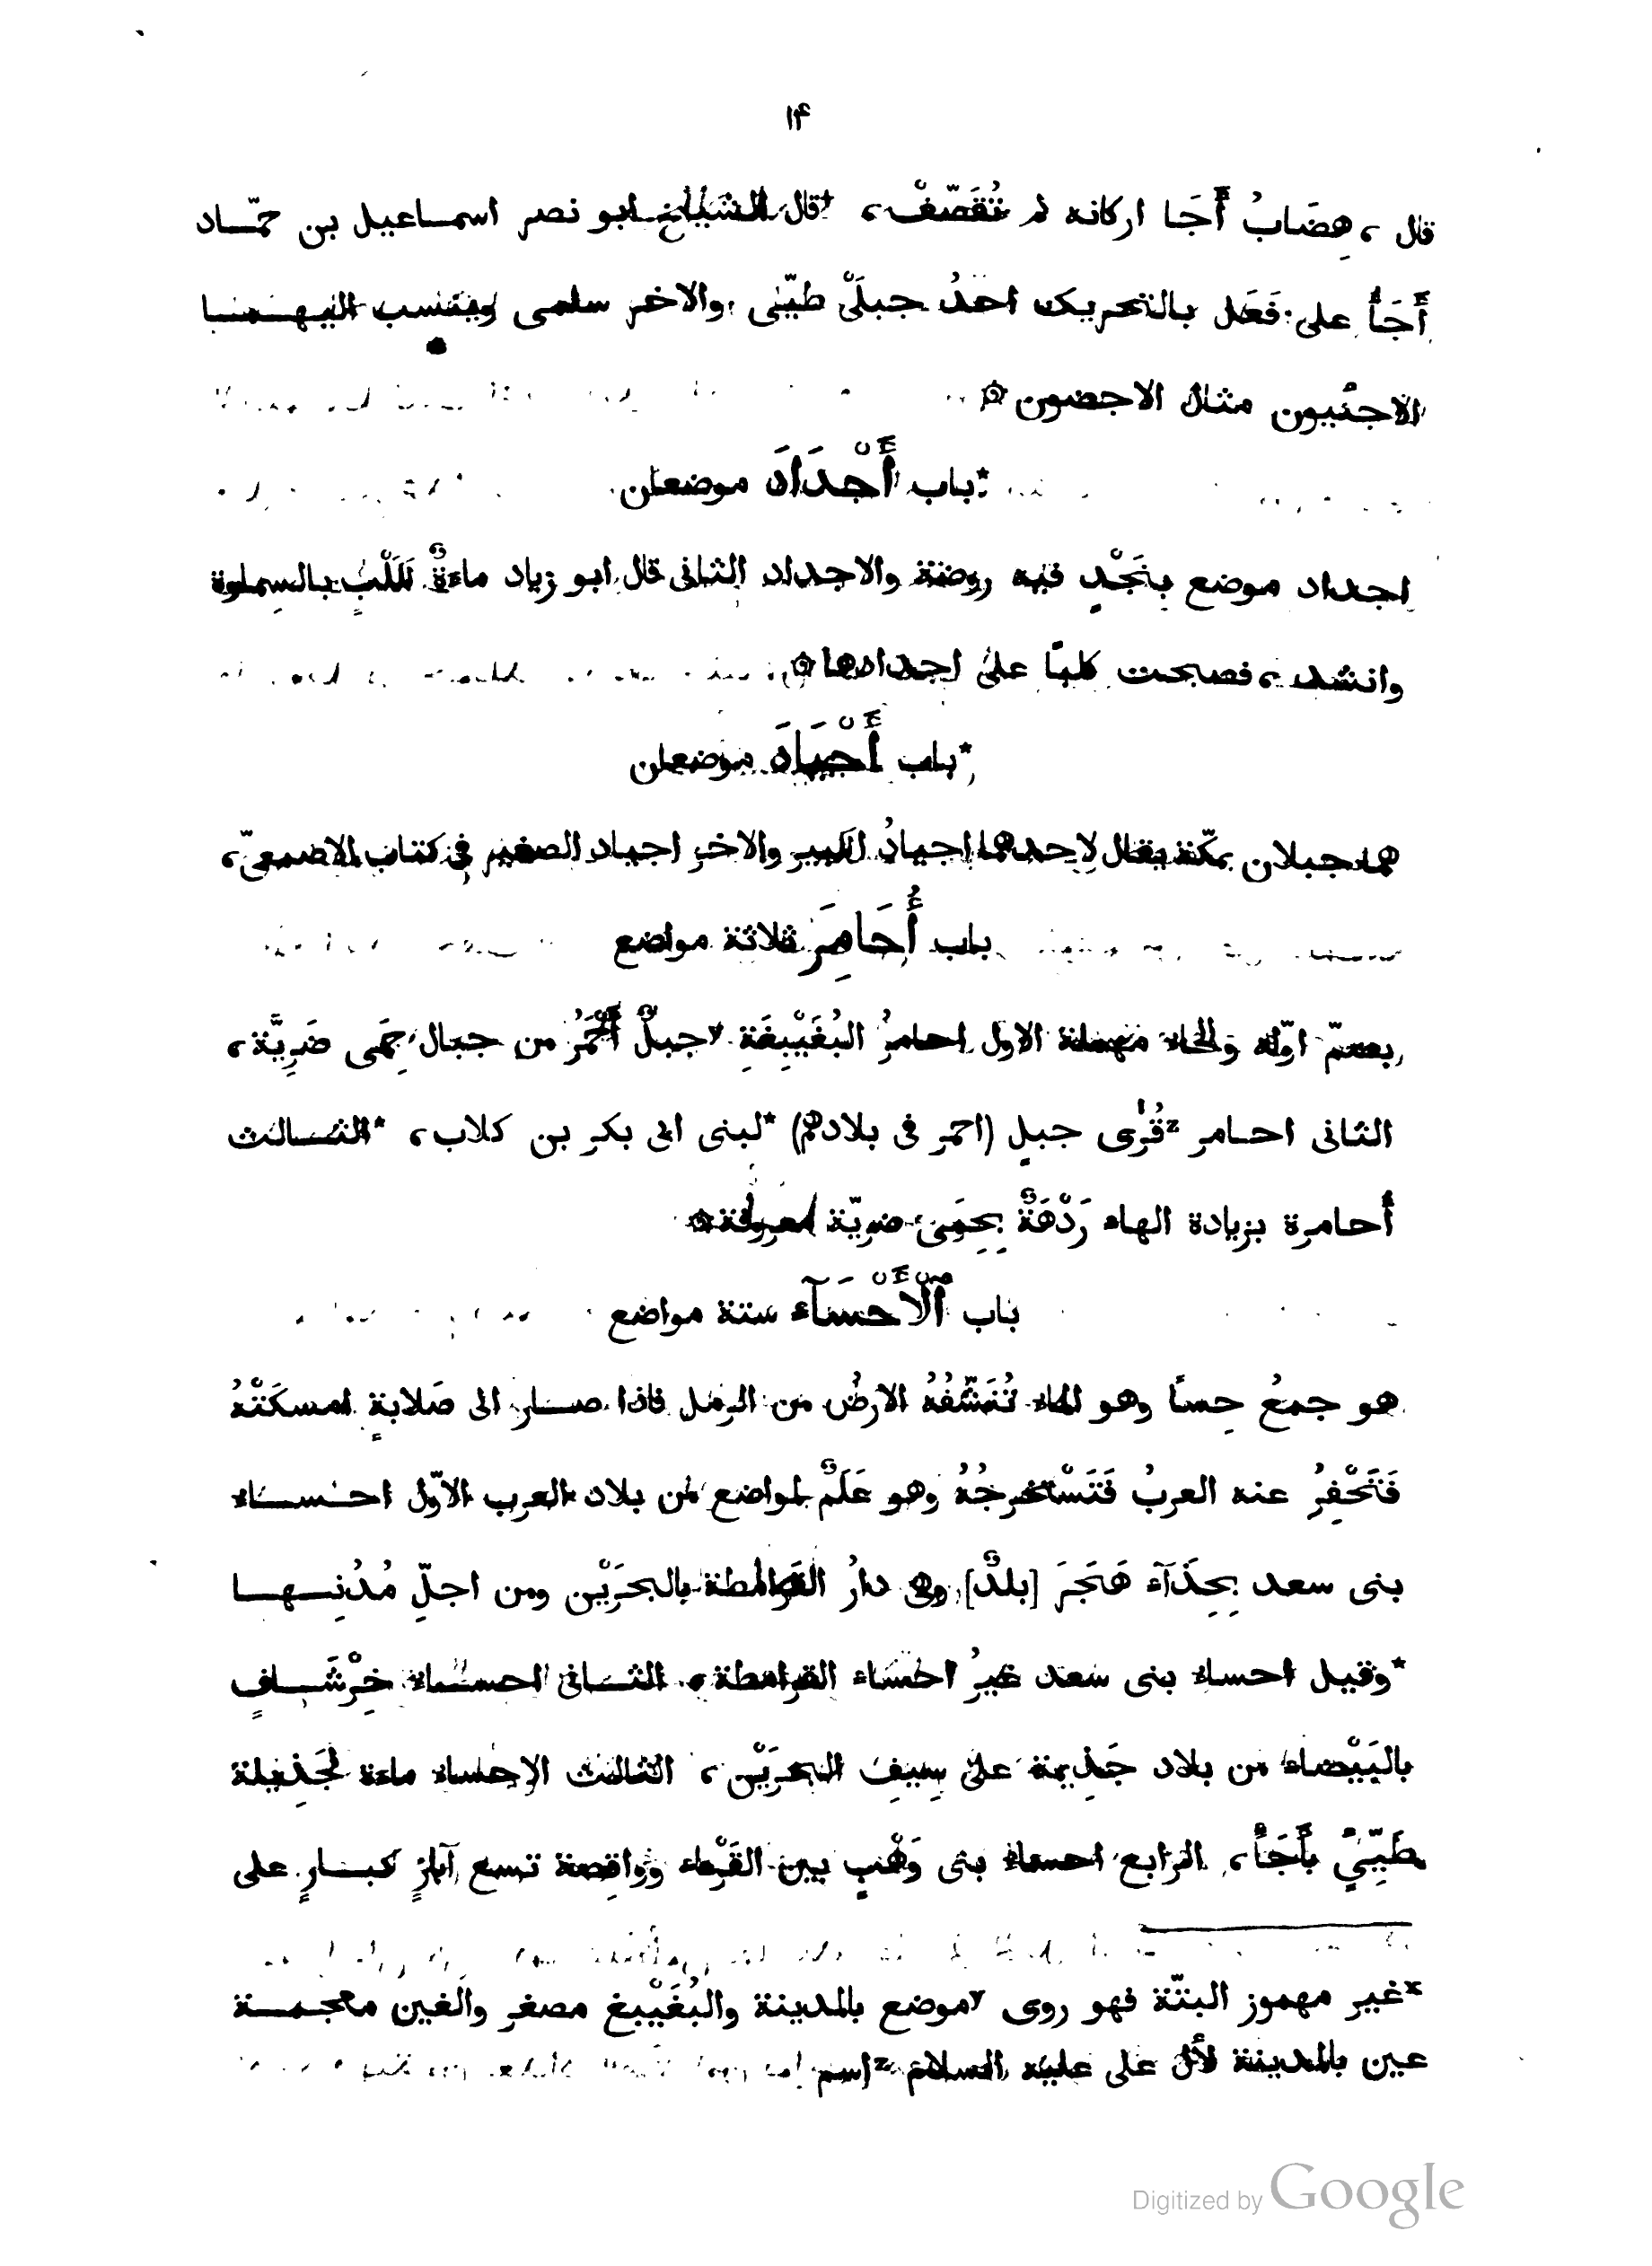 ١۴
قال ، هِضَابُ أَجَا اركانه لم تُقَصَّفْ، *قال الشيخ ابو نصر اسماعيل بن حمّاد
أَجَأٌ على فَعَل بالتحريك احدُ جبلَىْ طيّئى والاخر سلمى وينسب اليهما
الاجئيون مثال الاجعيون ۞
*باب أَجْدَادَ موضعان
اجداد موضع بنَجْدٍ فيه روضة والاجداد الثانى قال ابو زياد ماءةٌ لكَلْبٍ بالسماوة
وانشد ، فصبحت كلبًا على اجدادها ۞
*باب أَجْيَادَ موضعان
هما جبلان بمكّة يقال لاحدهما اجيادُ الكبير والاخر اجياد الصغير فى كتاب الاصمعىّ ،
باب أُحَامِرَ ثلاثة مواضع
بضمّ اوّله والحاء مهملة الاول احامرُ البُغَيْبِغَةِ y جبلٌ أَحْمَرُ من جبال حِمَى ضَرِيَّة ،
الثانى احامر z قُرًى جبلٍ (احمر فى بلادهم) *لبنى ابى بكر بن كلاب ، *الثالث
أحامرة بزيادة الهاء رَدْهَةٌ بِحِمَى ضريّة معروفة ۞
باب ٱلْأَحْسَآء ستة مواضع
هو جمعُ حِسأً وهو الماء تُنَشِّفُهُ الارضُ من الرمل فاذا صار الى صَلابةٍ امسكَتْهُ
فَتَحْفِرُ عنه العربُ فَتَسْتخرجُهُ وهو عَلَمٌ لمواضع من بلاد العرب الاوّل احساء
بنى سعد بِحِذَآء هَجَرَ [بلدٌ] وهى دارُ القَرامطة بالبحرَيْن ومن اجلّ مُدُنِها
*وقيل احساء بنى سعد غيرُ احْسَاء القرامطة ، الثانى احساء خِرْشَافٍ
بالبَيْضاء من بلاد جَذِيمة على سِيفِ البحرَيْن ، الثالث الاحساء ماءة لجَذِيلة
طَيِّئٍ بأَجَأٌ ، الرابع احساء بنى وَهْبٍ بين القَرْعاء وواقِصة تسع آبارٍ كبارٍ على
x غير مهموز البتّة فهو روى y موضع بالمدينة والبُغَيْبِغ مصغر والغين معجمة
عين بالمدينة لآل على عليه السلام z اسم
Digitized by Google